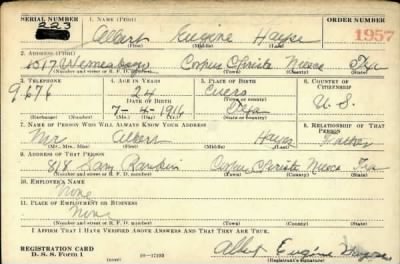 SERIAL NUMBER 1. NAME (Print) ORDER NUMBER
223 Albert Eugene Hayes 1957
(First) (Middle) (Last)
2. ADDRESS (Print)
1517 Corpus Christi Nueces Tex
(Number and street or R. F. D. number) (Town) (County) (State)
3. TELEPHONE 4. AGE IN YEARS 5. PLACE OF BIRTH 6. COUNTRY OF CITIZENSHIP
9676 24 Cuero
DATE OF BIRTH (Town or county)
7-4-1916 Tex U. S.
(Exchange) (Number) (Mo.) (Day) (Yr.) (State or country)
7. NAME OF PERSON WHO WILL ALWAYS KNOW YOUR ADDRESS 8. RELATIONSHIP OF THAT PERSON
Mr Albert Hayes Father
(Mr., Mrs., Miss) (First) (Middle) (Last)
9. ADDRESS OF THAT PERSON
818 Sam Rankin Corpus Christi Nueces Tex
(Number and street or R. F. D. number) (Town) (County) (State)
10. EMPLOYER'S NAME
None
11. PLACE OF EMPLOYMENT OR BUSINESS
None
(Number and street or R. F. D. number) (Town) (County) (State)
I AFFIRM THAT I HAVE VERIFIED ABOVE ANSWERS AND THAT THEY ARE TRUE.
REGISTRATION CARD Albert Eugene Hayes
D. S. S. Form 1 (Registrant's signature)